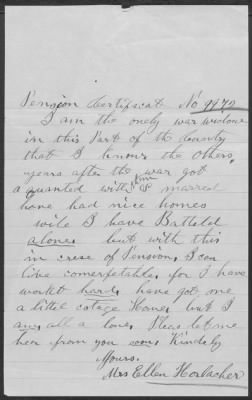 Pension Certificat No 9970
I am the onely war widow
in this Part of the County
that I know the Others
years after the war got
aquanted with them & marred
have had nice homes
wile I have Batteld
alone but with this
in crese of Pension, I can
live comerfetable, for I have
workt hard, have got me
a littel cotage Home, but I
am all a lone, Pleas let me
hear from you soon Kindely
Yours.
Mrs Ellen Horbacher